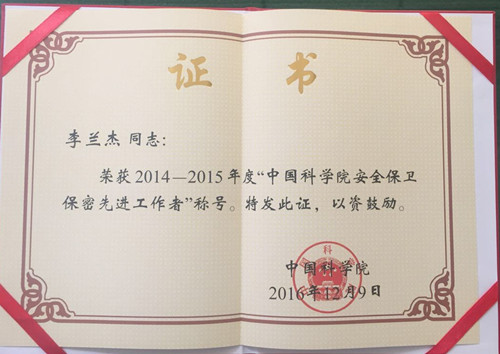 证书
李兰杰 同志:
荣获2014—2015年度“中国科学院安全保卫
保密先进工作者”称号。特发此证,以资鼓励。
中国科学院
2016年12月9日